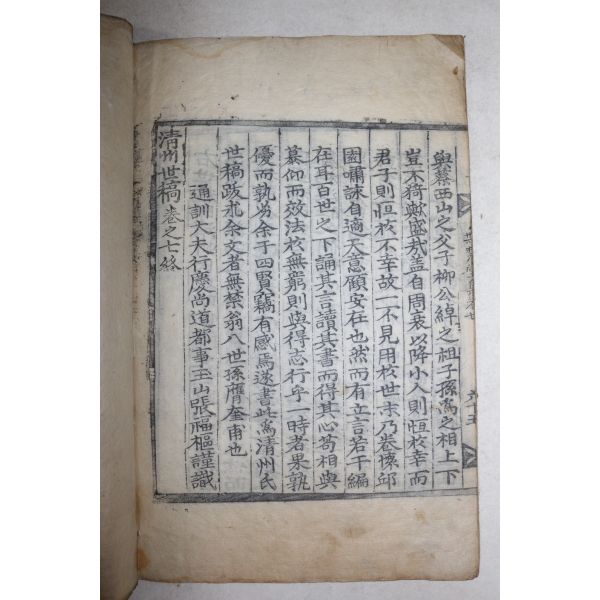 與蔡西山之父子柳公綽之祖子孫爲之相上下
豈不猗歟盛哉盖自周衰以降小人則恒扵幸而
君子則恒扵不幸故一不見用扵世未乃卷懷邱
園嘯詠自適天意顧安在也然而有立言若干編
在耳百世之下誦其言讀其書而得其心苟相與
慕仰而效法扵無窮則與得志行乎一時者果孰
優而孰劣余于四賢竊有感焉遂書此爲清州氏
世稿跋求余文者無禁翁八世孫膺奎甫也
通訓大夫行慶尚道都事玉山張福樞謹識
清州世稿卷之七終